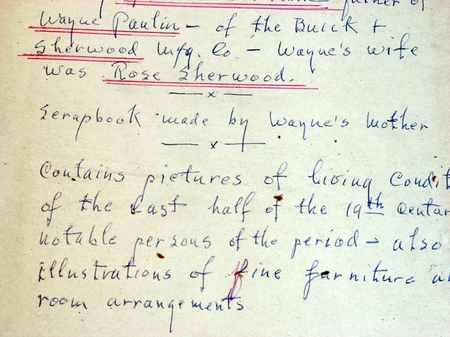 father of
Wayne Paulin - of the Buick +
Sherwood Mfg. Co - Wayne's wife
was Rose Sherwood.
Scrapbook made by Wayne's Mother
Contains pictures of living Condit
of the Last half of the 19th Centur
notable persons of the period - also
illustrations of fine furniture a
room arrangements